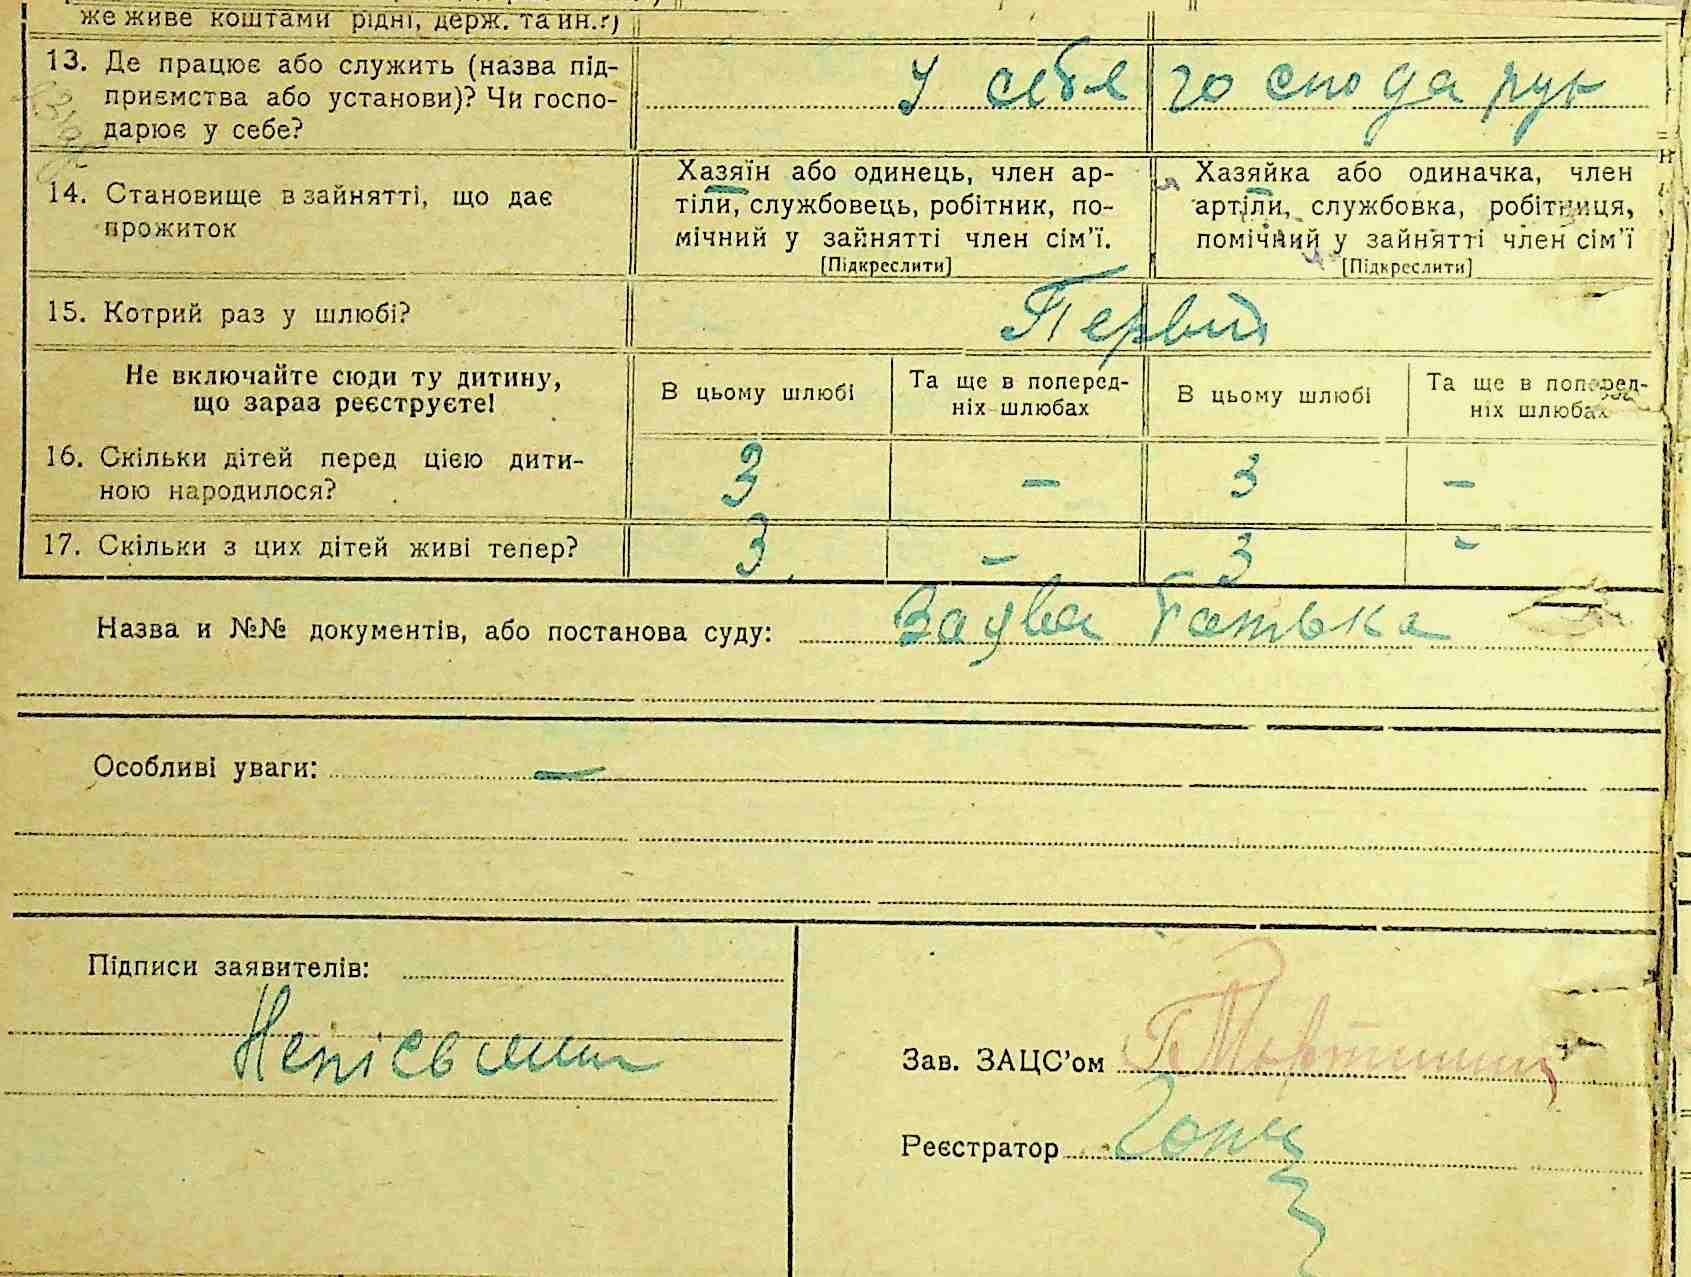 же живе коштами рідні, держ. та ин.?)
13. Де працює або служить (назва під-
приємства або установи)? Чи госпо-
дарює у себе?
У себя господарук
14. Становище в зайнятті, що дає
прожиток
Хазяїн або одинець, член ар-
тіли, службовець, робітник, по-
мічний у зайнятті член сім'ї.
[Підкреслити]
Хазяйка або одиначка, член
артіли, службовка, робітниця,
помічний у зайнятті член сім'ї
[Підкреслити]
15. Котрий раз у шлюбі?
Первий
Не включайте сюди ту дитину,
що зараз реєструєте!
В цьому шлюбі
Та ще в поперед-
ніх шлюбах
В цьому шлюбі
Та ще в поперед-
ніх шлюбах
16. Скільки дітей перед цією дити-
ною народилося?
3 – 3 –
17. Скільки з цих дітей живі тепер?
3 – 3 –
Назва и №№ документів, або постанова суду: Заява батька
Особливі уваги: –
Підписи заявителів:
Неписьмин
Зав. ЗАЦС'ом
Реєстратор